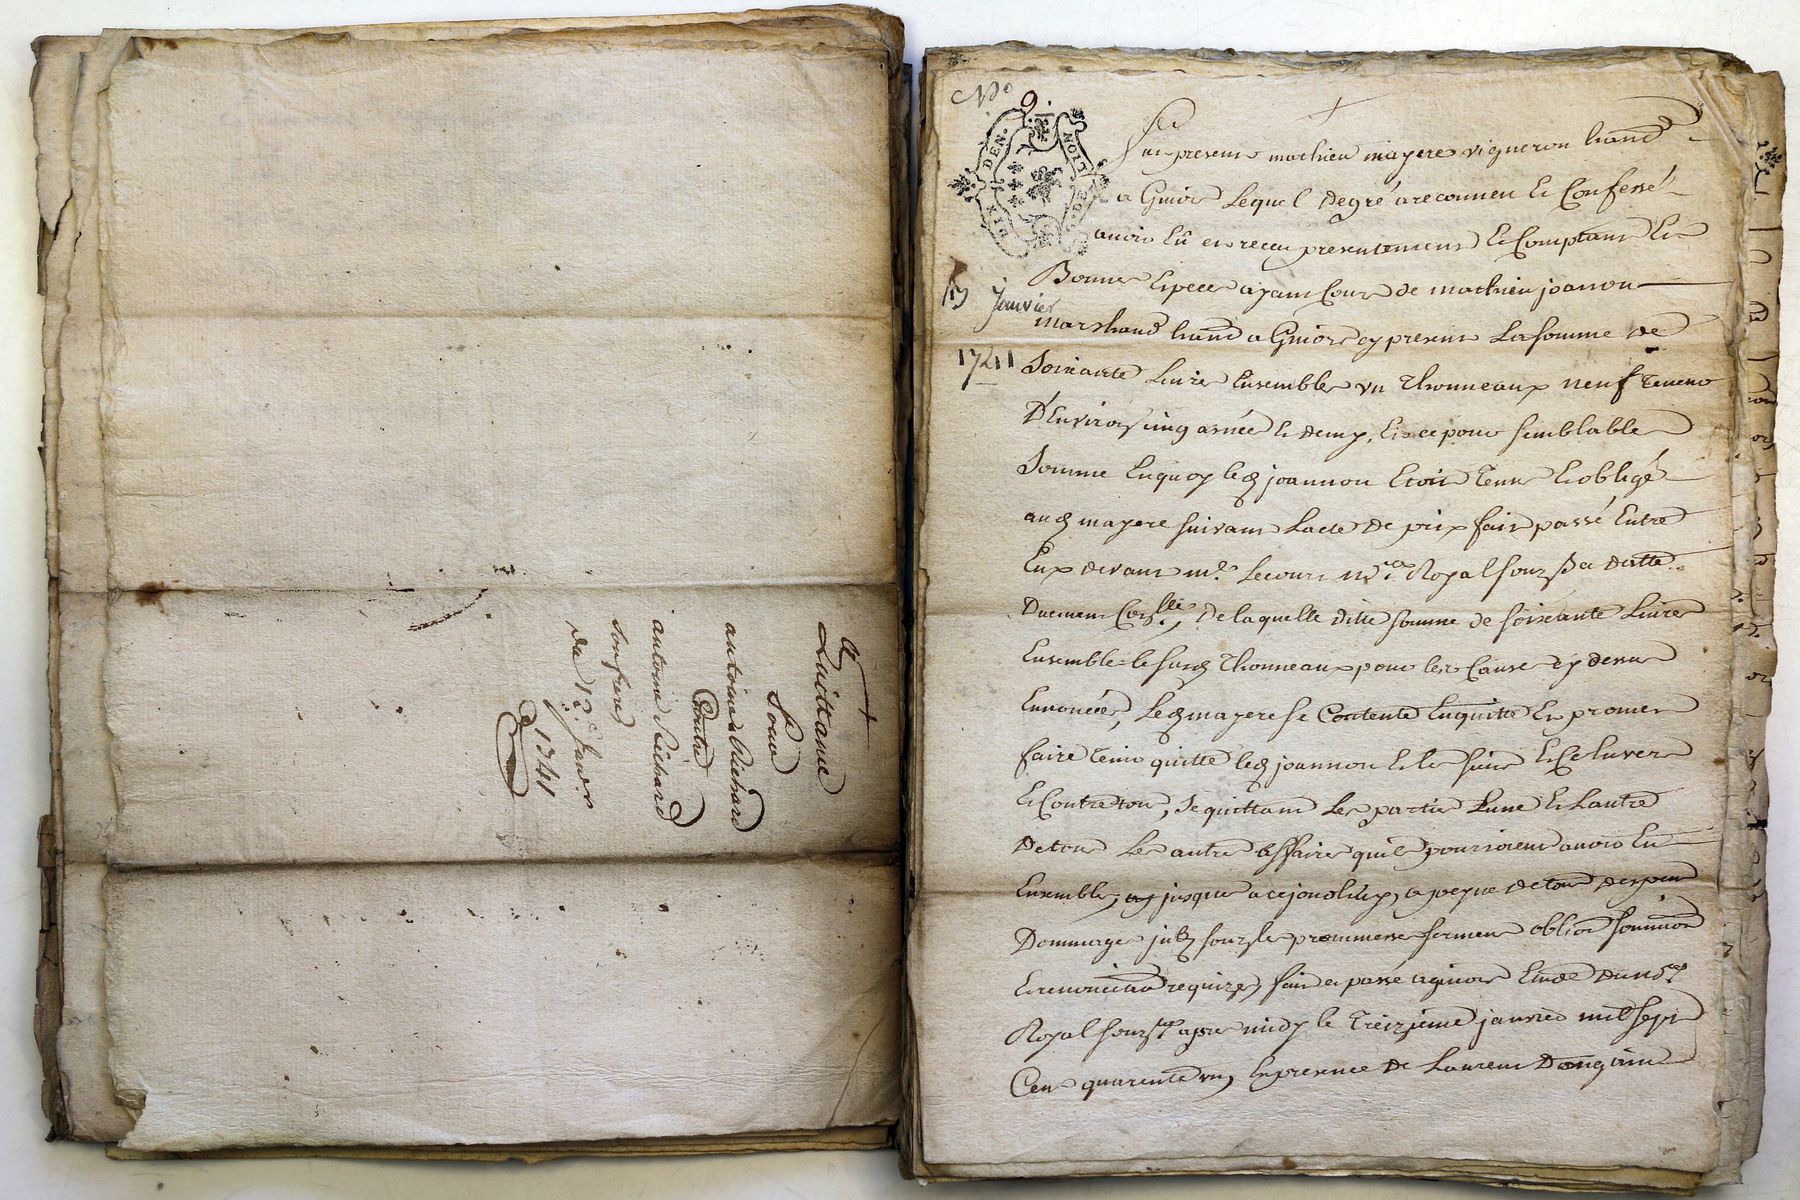 Quittance
Pour
antoine Richard
Contre
antoine Richard
son frere
du 12e Janvier
1741
No 9.
DIX DEN.
G. DE LION
13 Janvier
1741
fut present mathieu mayere vigneron habnd
a Givors Lequel degré a reconneu Et Confessé
avoir Eû et receu presentement Et Comptant En
Bonnes Especes ayant Cours de mathieu joannon
marchand habnd a Givors cy present La somme de
Soixante Livres Ensemble un Thonneaux neuf teneur
D'Environ cinq asnée Et demy, Et ce pour semblable
Somme Enquoy led joannon Etoit tenu Et obligé
aud mayere suivant Lacte de prix fait passé Entre
Eux devant me Lecourt Royal
De laquelle ditte somme de soixante Livres
Ensemble le susd Thonneaux pour les Causes cy dessus
Ennoncées, led mayere se Contente Enquitte Et promet
faire tenir quitte led joannon Et les siens Et Ce Envers
Et Contre tous, se quittant Les parties Lune Et Lautre
De tous Les autres affaires quils pourroient avoir Eu
Ensemble, jusques a ce jourdhuy, a peyne de tous despens
Dommages promesse serment
Et renonciaon requizes, fait et passé a givors Etude du nore
Royal apres midy le Treizieme janvier mil sept
Cent quarente un, En presence de Laurent